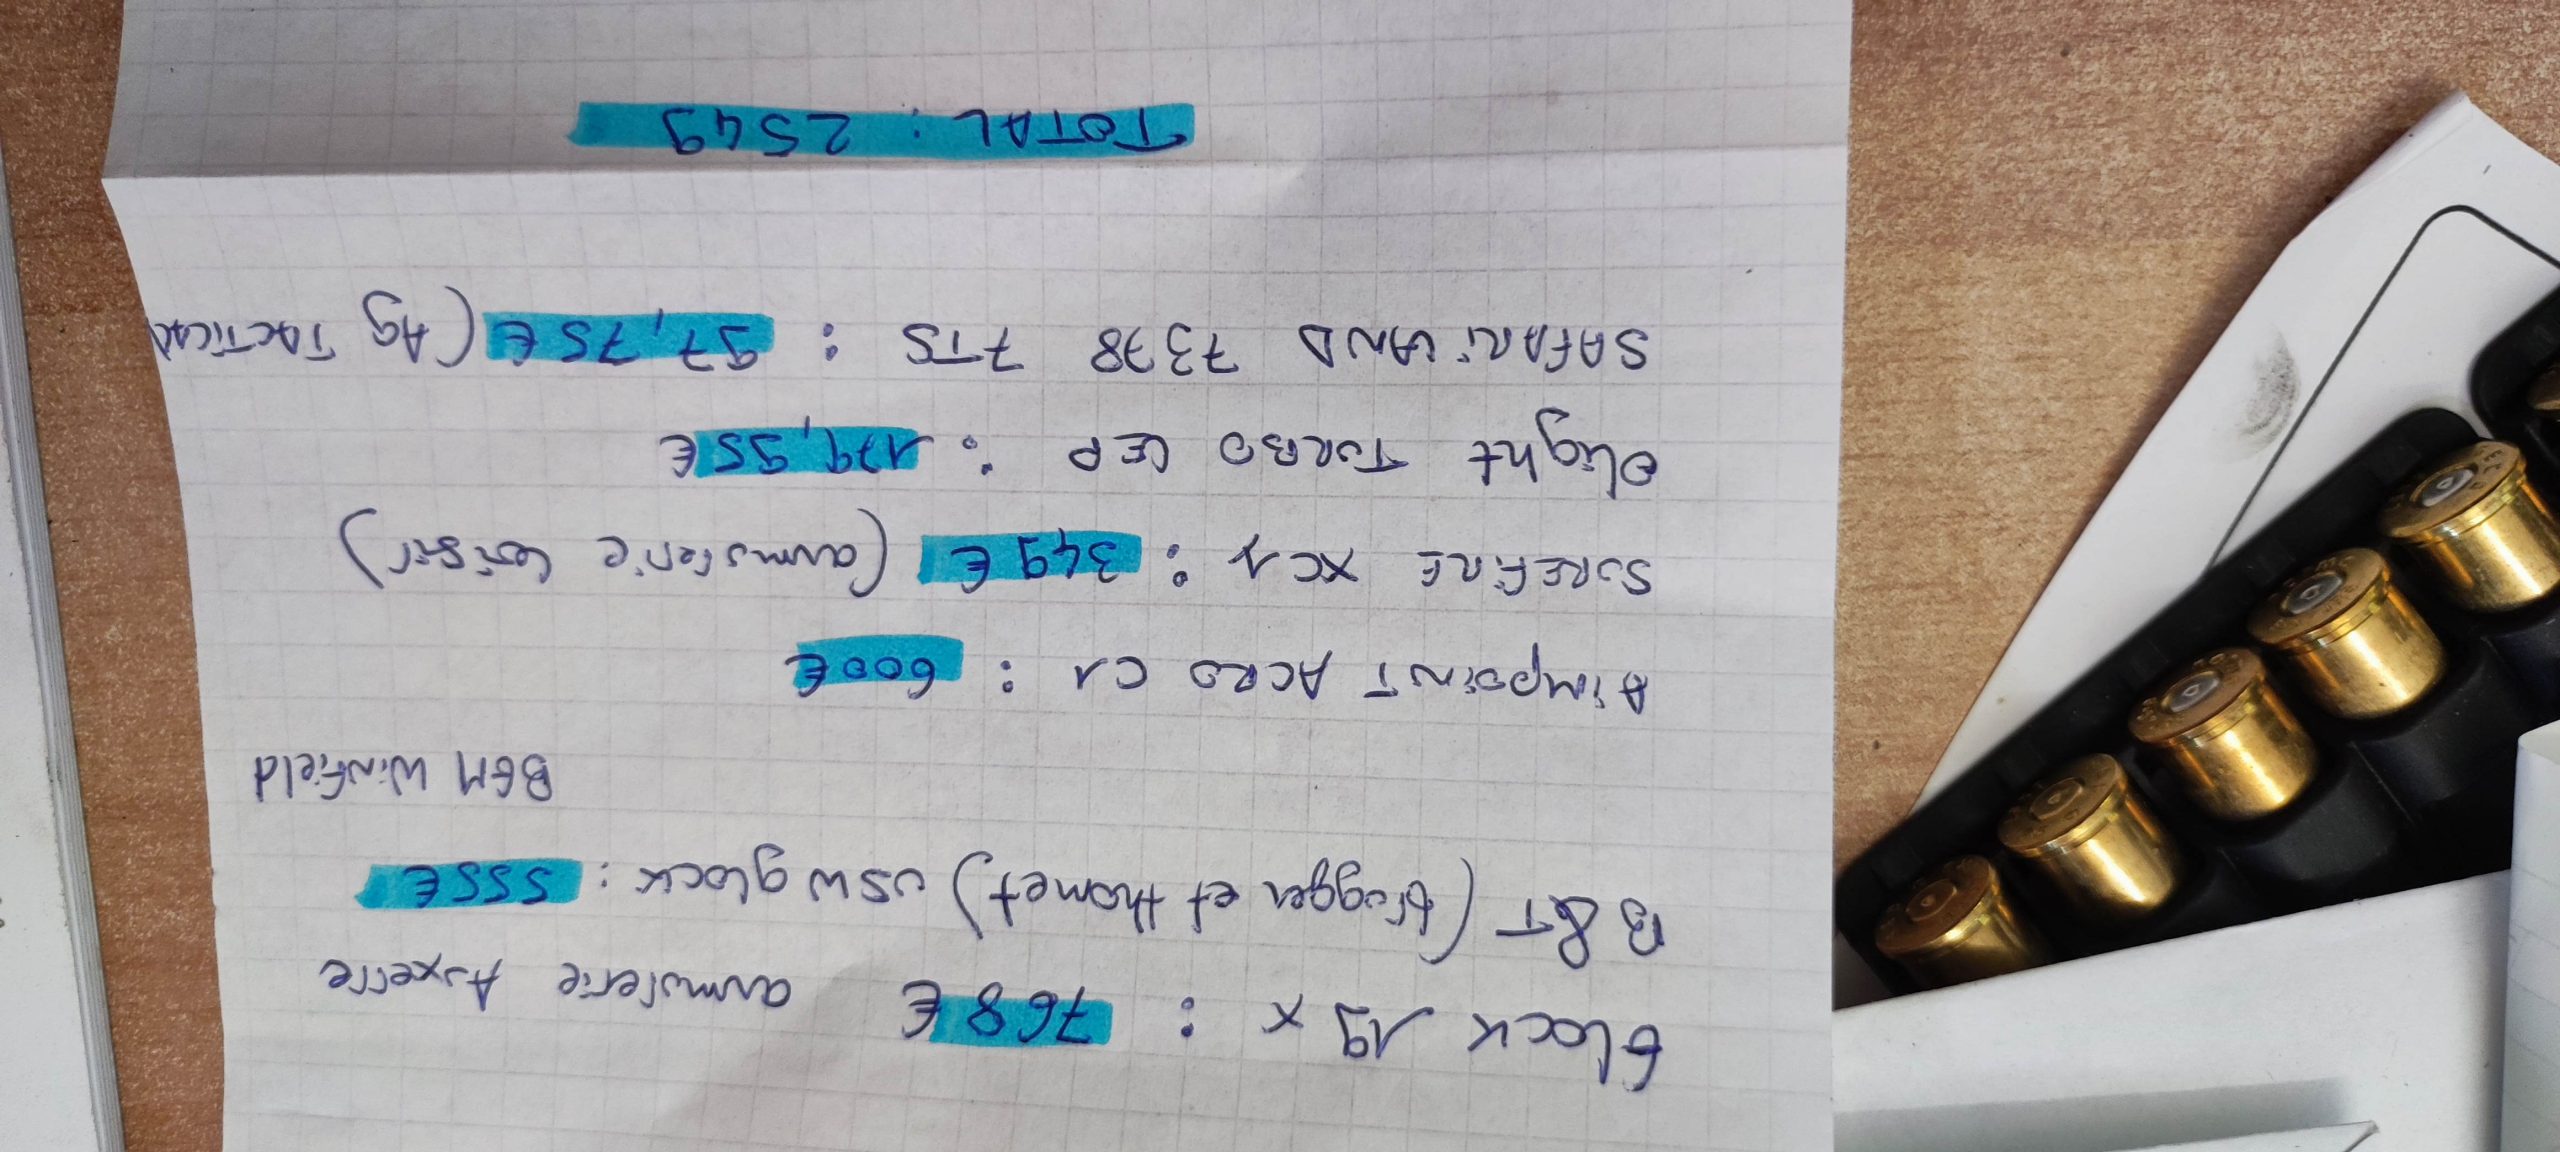 Glock 19 x : 768 € armurerie Auxerre
B&T (brugger et thomet) USW glock : 555 €
BGM Winfield
Aimpoint ACRO C1 : 600 €
SUREFIRE XC1 : 349 € (armurerie
Olight TURBO LEP : 179,95 €
SAFARILAND 7378 7TS : 97,75 € (AG TACTICAL
TOTAL : 2549